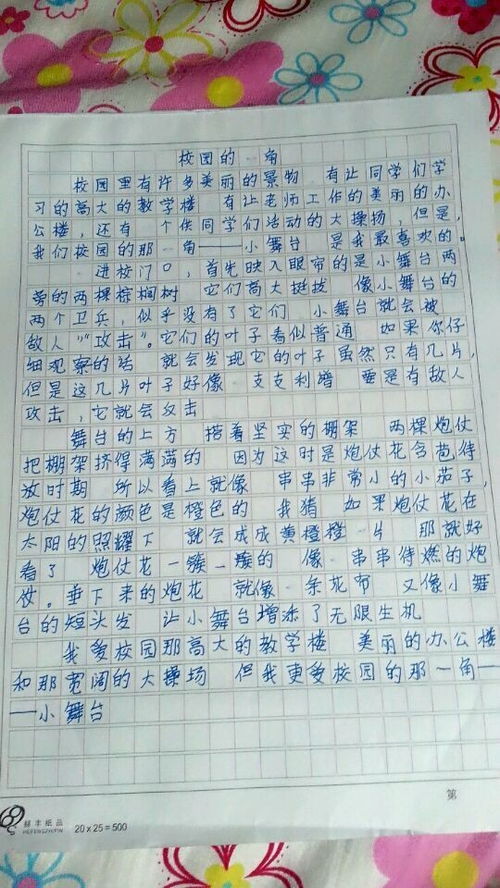 校园的一角
校园里有许多美丽的景物 有让同学们学
习的高大的教学楼 有让老师工作的美丽的办
公楼，还有 个供同学们活动的大操场，但是，
我们校园的那一角——小舞台 是我最喜欢的。
进校门口，首先映入眼帘的是小舞台两
旁的两棵棕榈树 它们高大挺拔 像小舞台的
两个卫兵，似乎没有了它们 小舞台就会被
敌人“攻击”。它们的叶子看似普通 如果你仔
细观察的话 就会发现它的叶子虽然只有几片，
但是这几片叶子好像 支支利 要是有敌人
攻击，它就会反击
舞台的上方 搭着坚实的棚架 两棵炮仗
把棚架挤得满满的 因为这时是炮仗花含苞待
放时期 所以看上就像 串串非常小的小茄子，
炮仗花的颜色是橙色的 我猜 如果炮仗花在
太阳的照耀下 就会成成黄橙橙一片 那就好
看了 炮仗花一簇一簇的 像一串串待燃的炮
仗。垂下来的炮花 就像一条花布 又像小舞
台的短头发 让小舞台增添了无限生机
我爱校园那高大的教学楼 美丽的办公楼
和那宽阔的大操场 但我更爱校园的那一角—
—小舞台
第
纸品
20×25=500